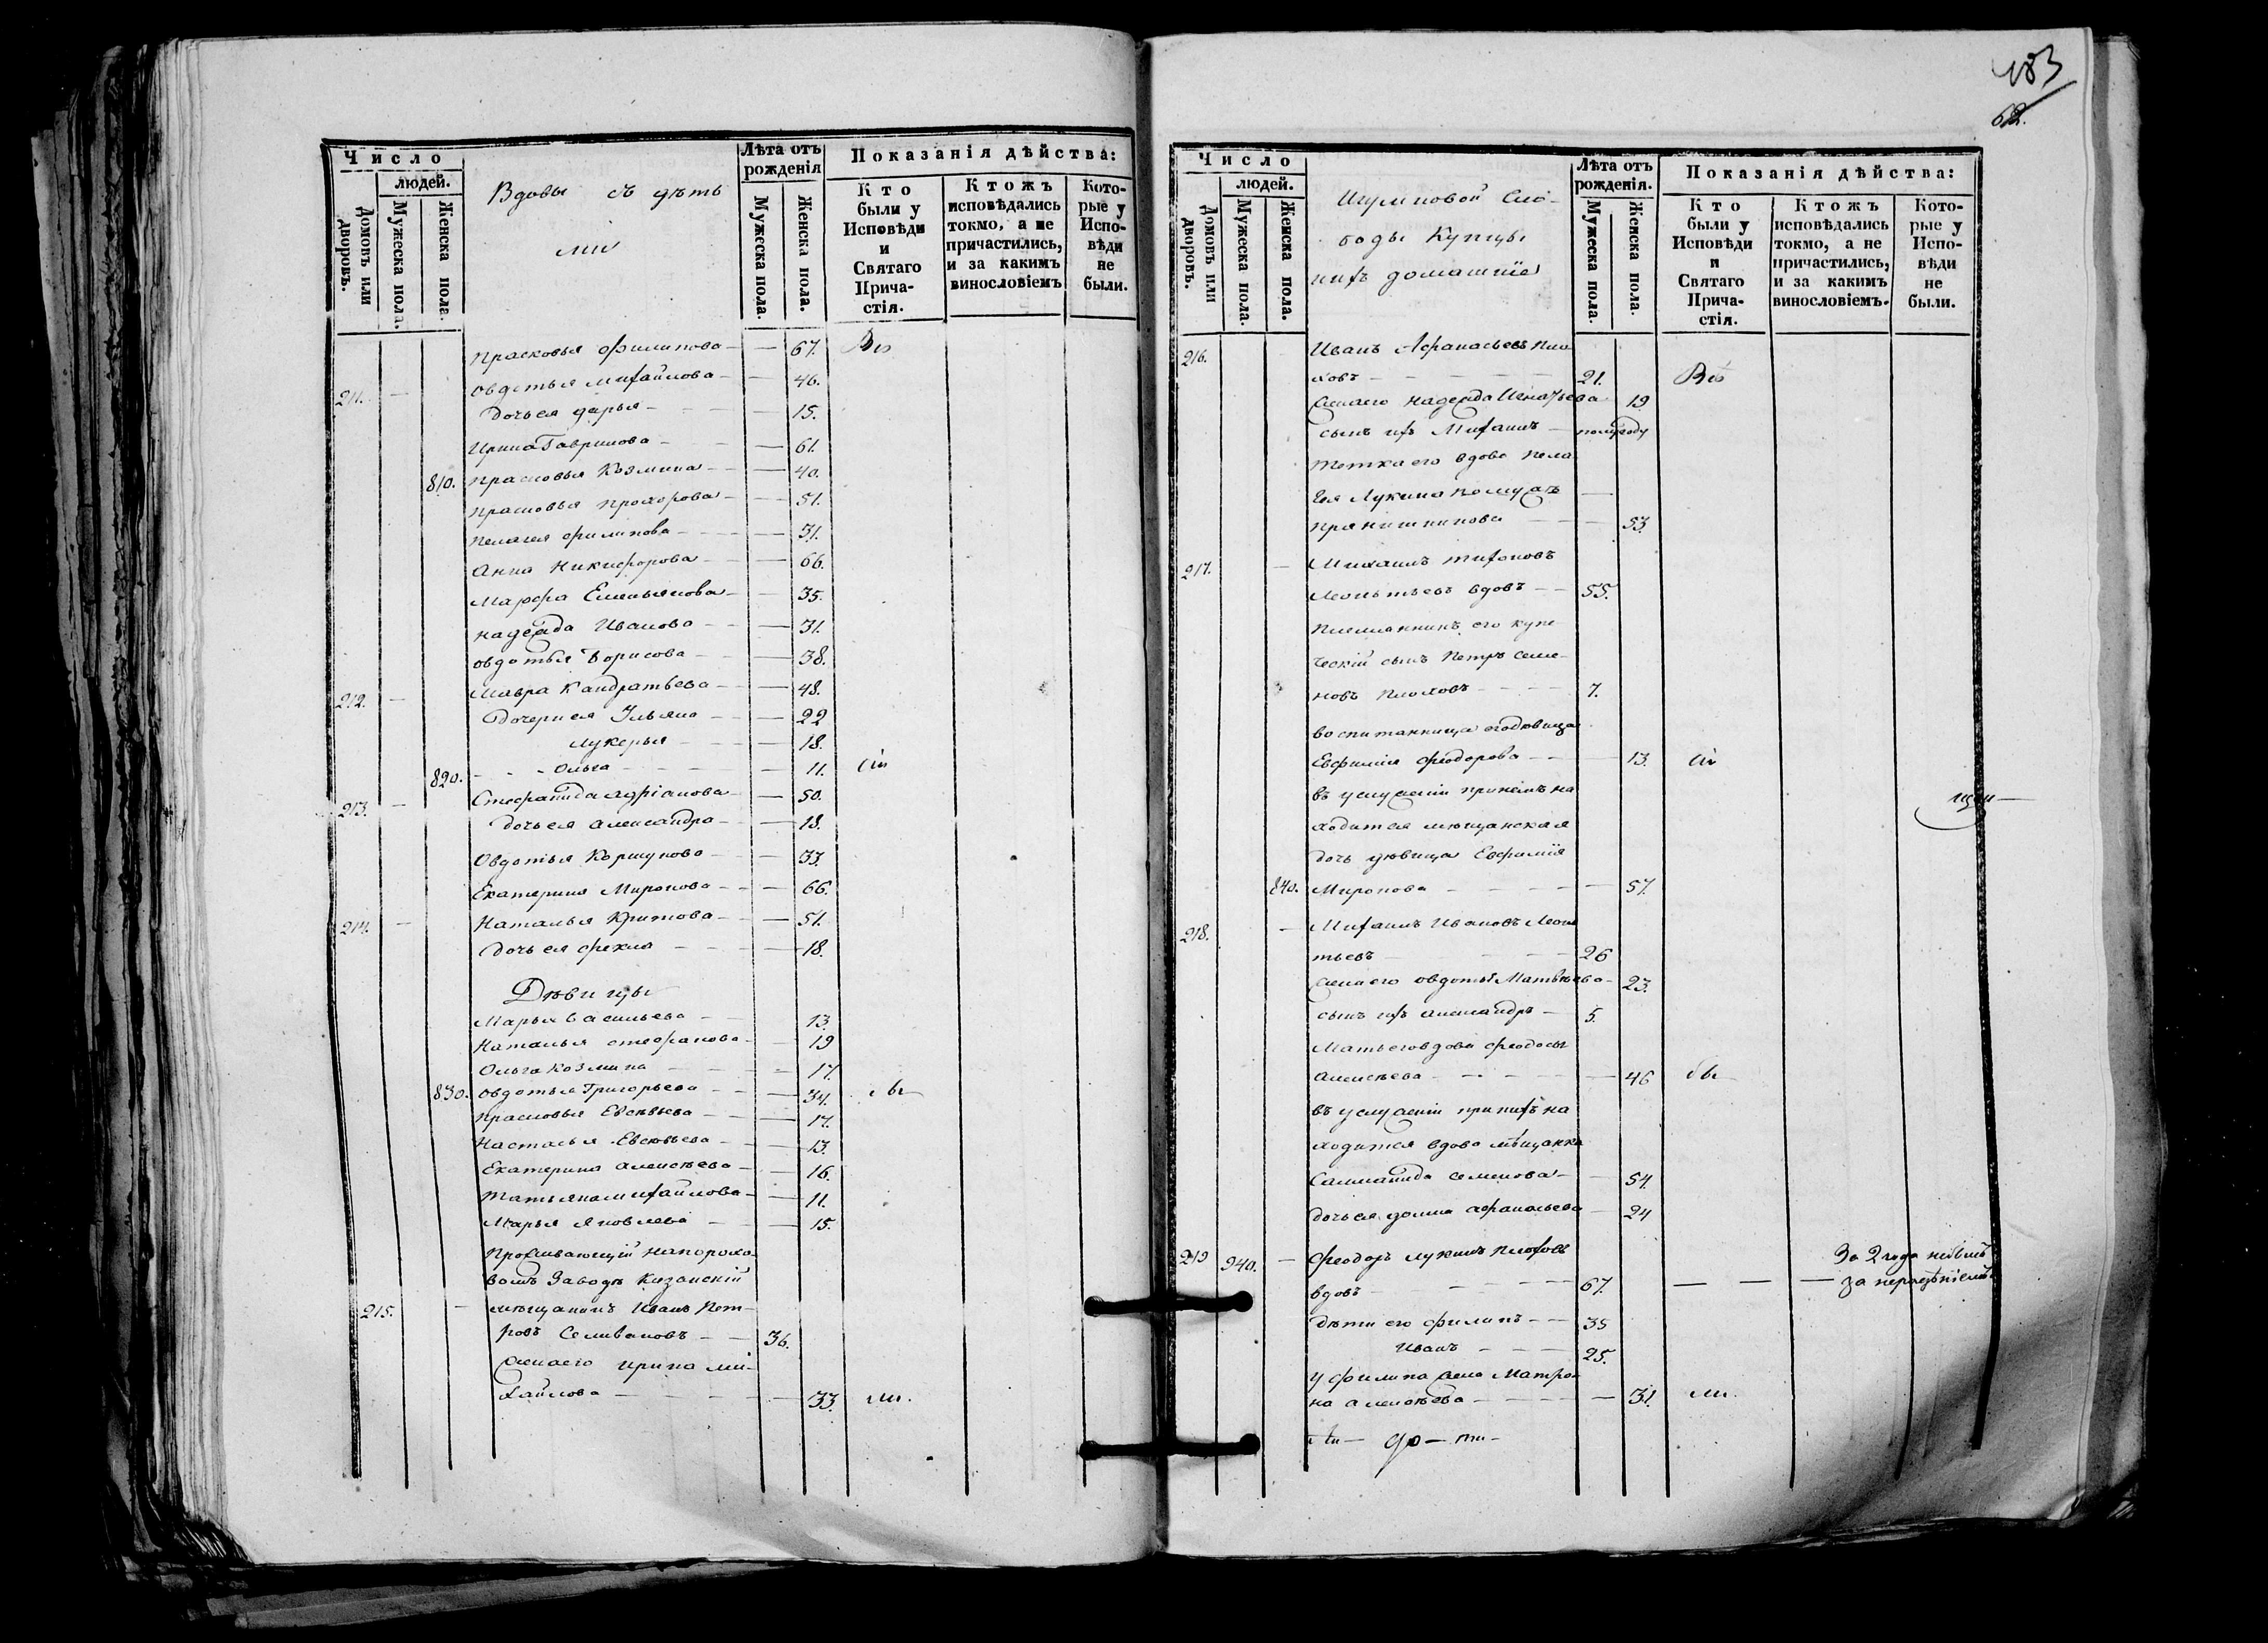 Число
людей.
Домовъ или дворовъ.
Мужеска пола.
Женска пола.
Вдовы съ дѣть
ми
Лѣта отъ рожденія
Мужеска пола.
Женска пола.
Показанія дѣйства:
Кто были у Исповѣди и Святаго Прича-стія.
Ктожъ исповѣдались токмо, а не причастились, и за какимъ винословіемъ
Кото-рые у Испо-вѣди не были.
Прасковья Филипова — — 67.
211. — Овдотья Михайлова — — 46.
Дочь ея Дарья — — 15.
Ирина Гаврилова — — 61.
810. Прасковья Козмина — — 40.
Прасковья Прохорова — — 51.
Пелагея Филипова — — 31.
Анна Никифорова — — 66.
Марфа Емельянова — — 35.
Надежда Иванова — — 31.
Овдотья Борисова — — 38.
212. — Мавра Кандратьева — — 48.
Дочери ея Ульяна — — 22
Лукерья — — 18.
820. Ольга — — 11.
213. — Стефанида Адріанова — — 50.
Дочь ея Александра — — 18.
Овдотья Коршунова — — 33.
Екатерина Миронова — — 66.
214. — Наталья Титова — — 51.
Дочь ея Фекла — — 18.
Дѣвицы
Марья Васильева — 13.
Наталья Стефанова — 19
Ольга Козмина — 17.
830. Овдотья Григорьева — 34.
Прасковья — 17.
Настасья — 13.
Екатерина Алексѣева — 16.
Татьяна Михайлова — 11.
Марья Яковлева — 15.
Проживающій на порохо-
вомъ Заводѣ Казанскій
215. — мѣщанинъ Иванъ Пет-
ровъ Селивановъ — — 36.
Жена его Ирина Ми-
хайлова — — 33.
483
62.
Число
людей.
Домовъ или дворовъ.
Мужеска пола.
Женска пола.
Слo-
боды Купцы
ихъ домашніе
Лѣта отъ рожденія.
Мужеска пола.
Женска пола.
Показанія дѣйства:
Кто были у Исповѣди и Святаго Прича-стія.
Ктожъ исповѣдались токмо, а не причастились, и за какимъ винословіемъ.
Кото-рые у Испо-вѣди не были.
216. Иванъ Афанасьевъ Пло
ховъ — 21.
Жена его Надежда Игнатьева 19
сынъ ихъ Михаилъ — полугоду
Тетка его вдова Пела
гея Лукина по мужѣ
Прянишникова — 53.
217. — Михаилъ Тихоновъ
Леонтьевъ вдовъ — 55.
Племянникъ его купе
ческій сынъ Петръ Семе-
новъ Плоховъ — 7.
воспитанница его дѣвица
Евфимія Феодорова — 13.
въ услуженіи при немъ на
ходится мѣщанская
дочь дѣвица Евфимія
840. Миронова — — 57.
218. — Михаилъ Ивановъ Леон
тьевъ — 26
Жена его Овдотья Матвѣева — 23.
сынъ ихъ Александръ — 5.
Мать его вдова Феодосья
Алексѣева — — 46
въ услуженіи при нихъ на
ходится вдова мѣщанка
Саломанида Семенова — 54.
дочь ея Домна Афанасьева — 24
219 940. — Феодоръ Лукинъ Плоховъ
За 2 года небылъ
вдовъ — 67. — — — за нерадѣніемъ
Дѣти его Филипъ — 35
Иванъ — 25.
У Филипа жена Матро
на Алексѣева — — 31.